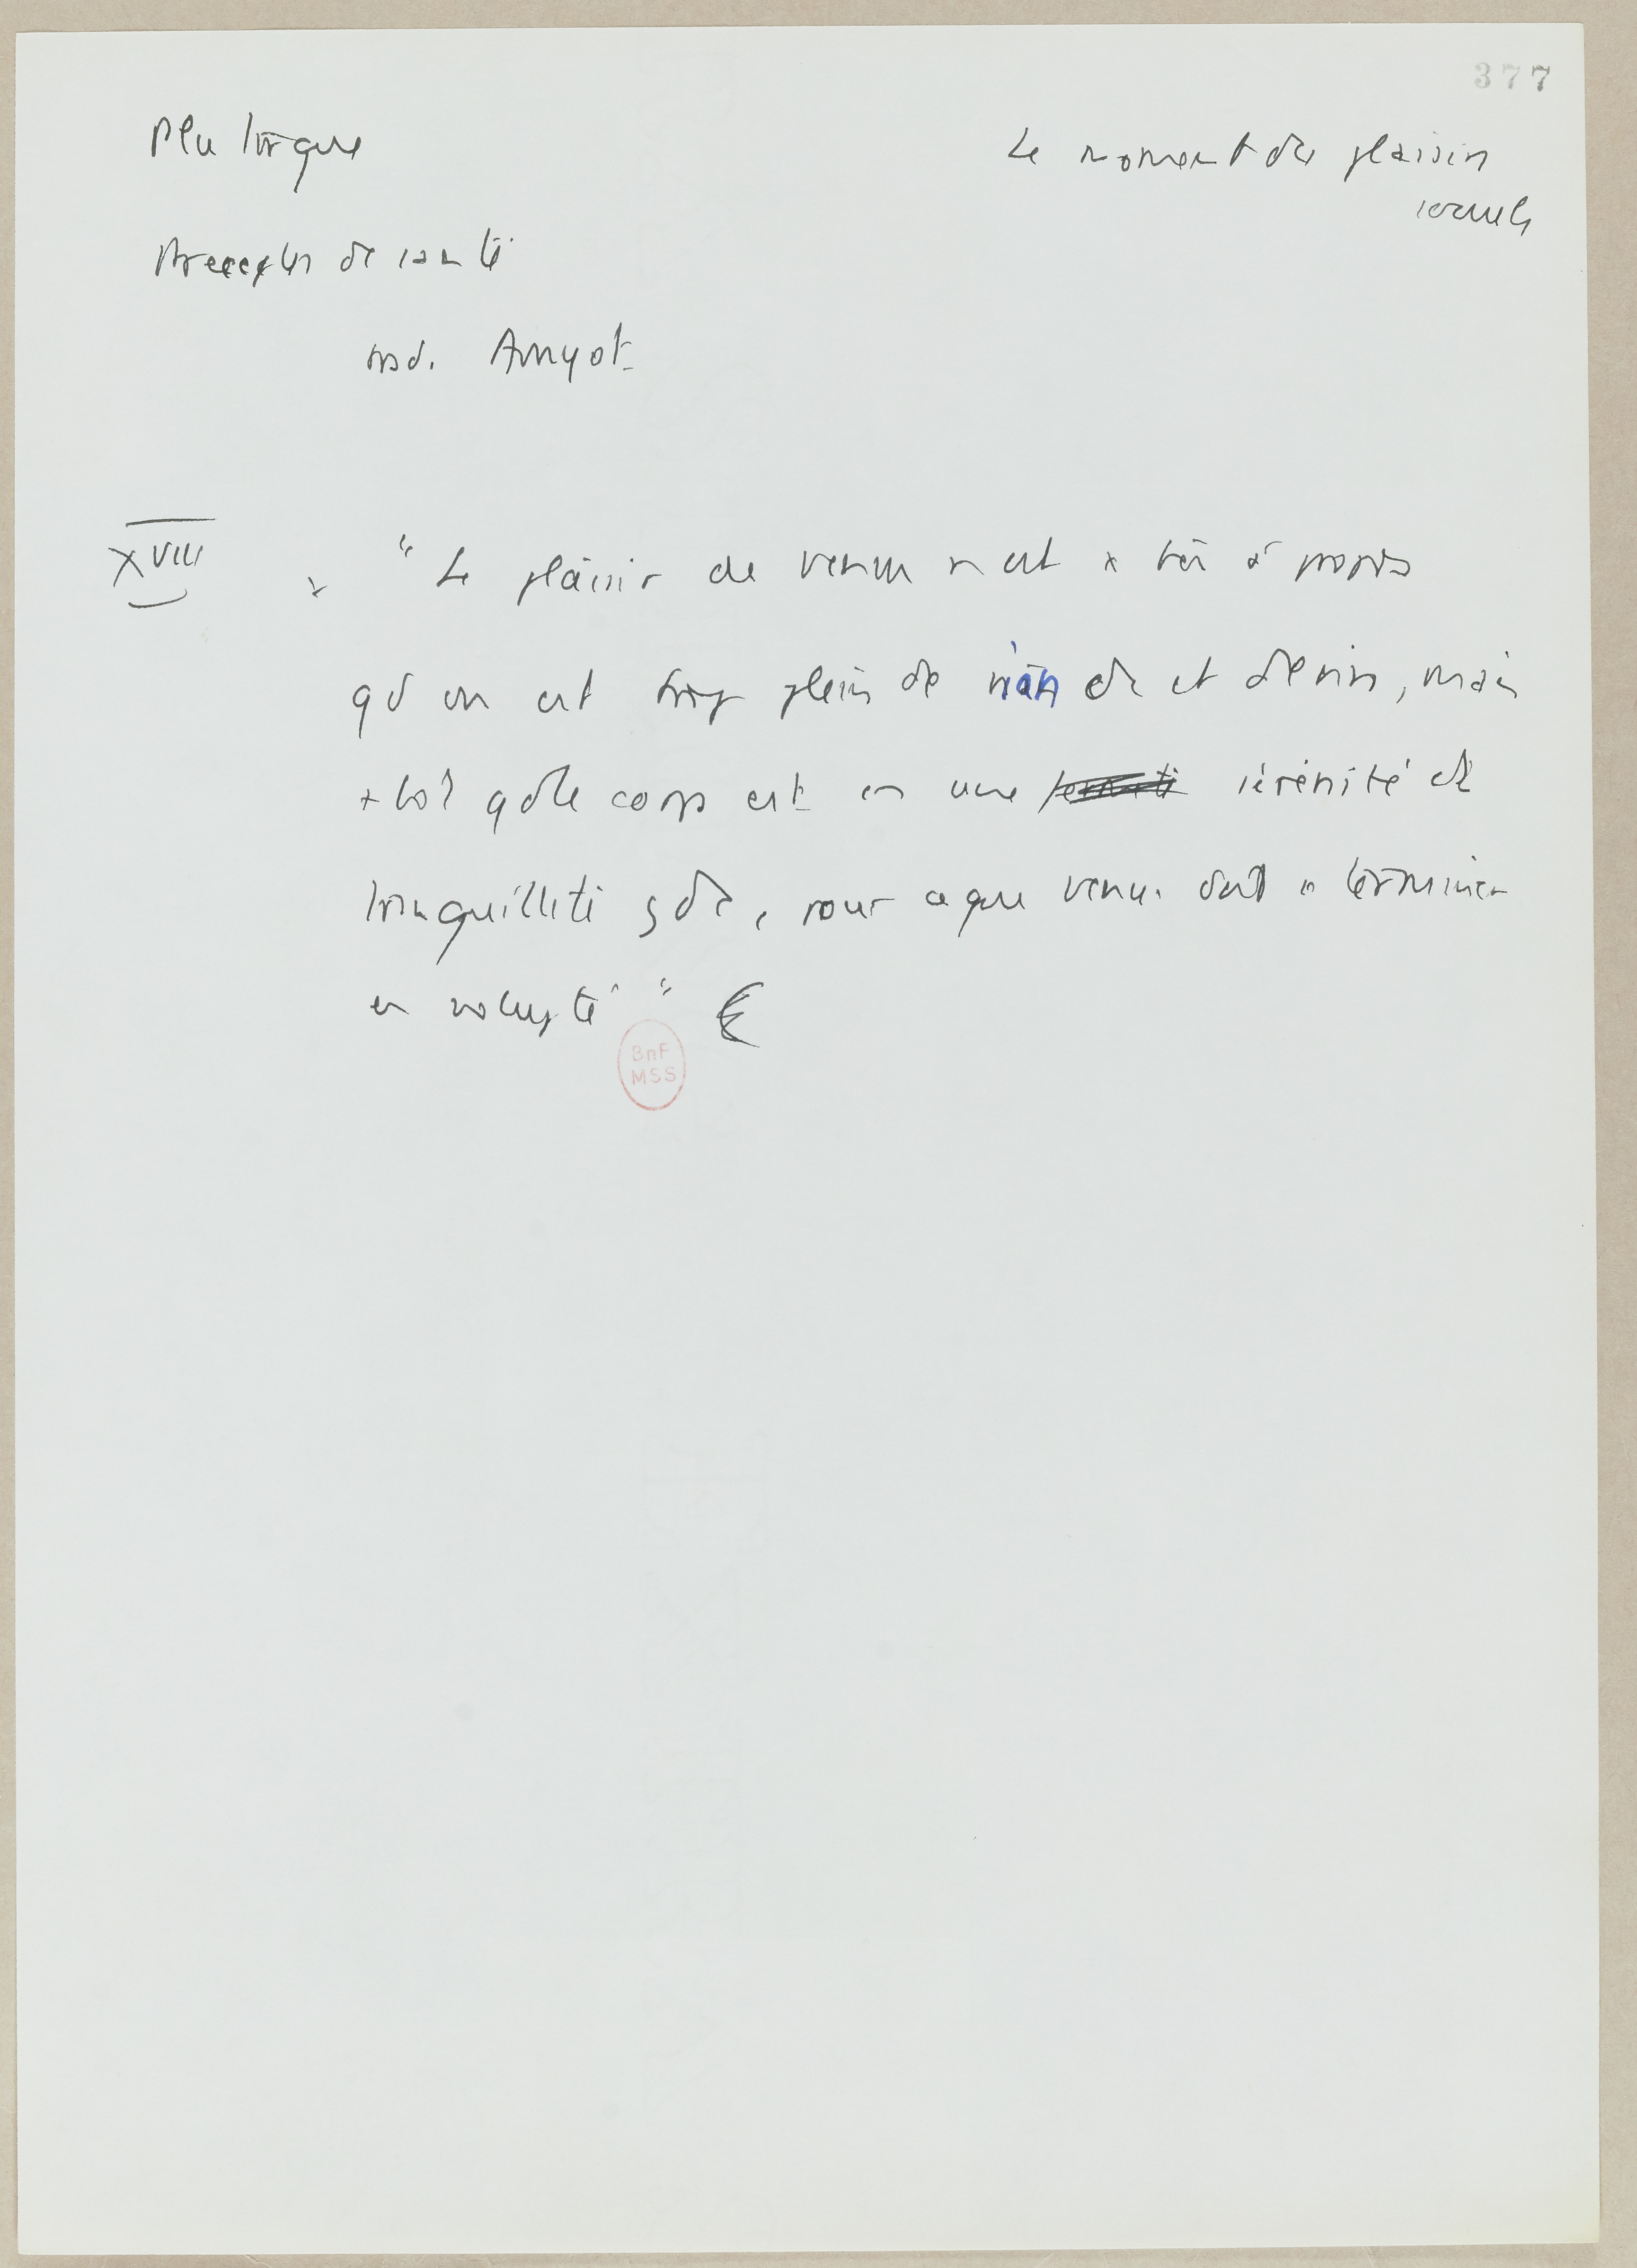 377
Plutarque
Le moment des plaisirs
sexuels
Preceptes de santé
trad. Amyot
XVIII
" Le plaisir de Venus n'est + très à propos
qd on est trop plein de viande et de vin, mais
+ tôt qd le corps est en une sérénité et
tranquillité gde, pour ce que Venus doit se terminer
en volupté "
BnF
MSS